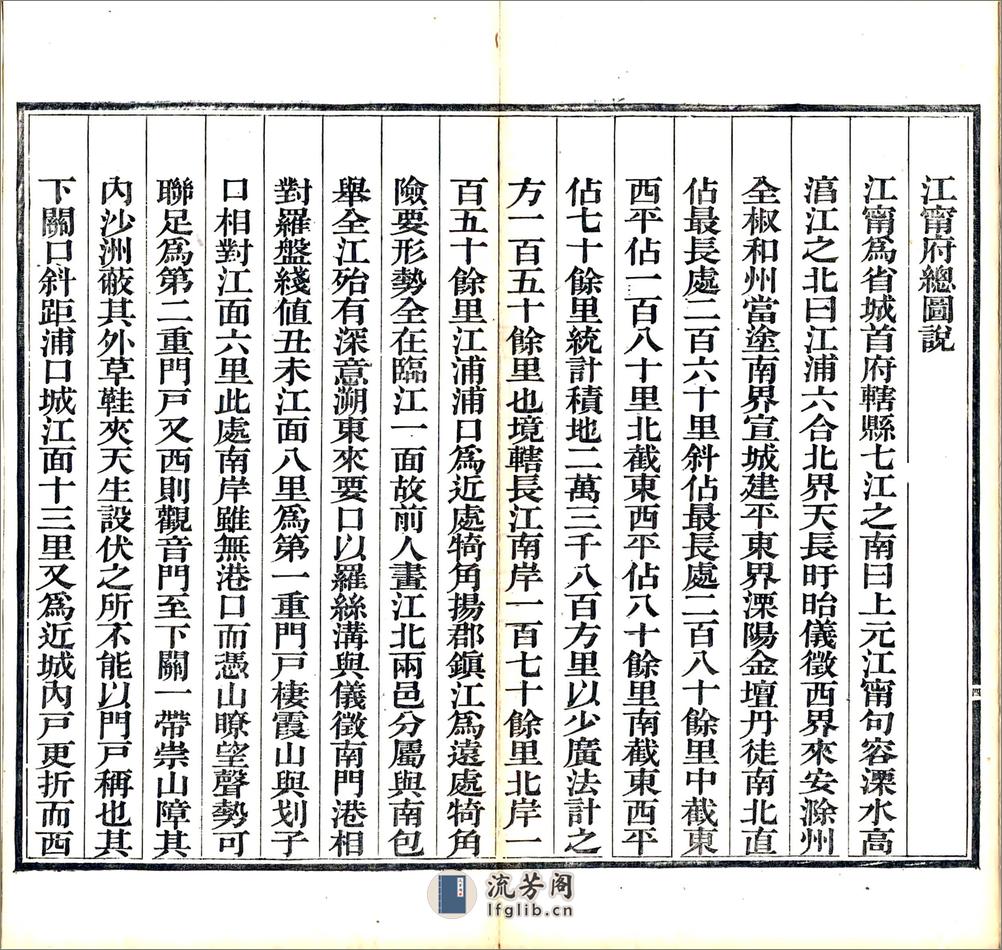 江甯府總圖說
江甯為省城首府轄縣七江之南曰上元江甯句容溧水高
淳江之北曰江浦六合北界天長盱眙儀徵西界來安滁州
全椒和州當塗南界宣城建平東界溧陽金壇丹徒南北直
佔最長處二百六十里斜佔最長處二百八十餘里中截東
西平佔一百八十里北截東西平佔八十餘里南截東西平
佔七十餘里統計積地二萬三千八百方里以少廣法計之
方一百五十餘里也境轄長江南岸一百七十餘里北岸一
百五十餘里江浦浦口為近處犄角揚郡鎮江為遠處犄角
險要形勢全在臨江一面故前人畫江北兩邑分屬與南包
舉全江殆有深意溯東來要口以羅絲溝與儀徵南門港相
對羅盤綫值丑未江面八里為第一重門戶棲霞山與划子
口相對江面六里此處南岸雖無港口而憑山瞭望聲勢可
聯足為第二重門戶又西則觀音門至下關一帶崇山障其
內沙洲蔽其外草鞋夾天生設伏之所不能以門戶稱也其
下關口斜距浦口城江面十三里又為近城內戶更折而西
四
流芳阁
lfglib.cn